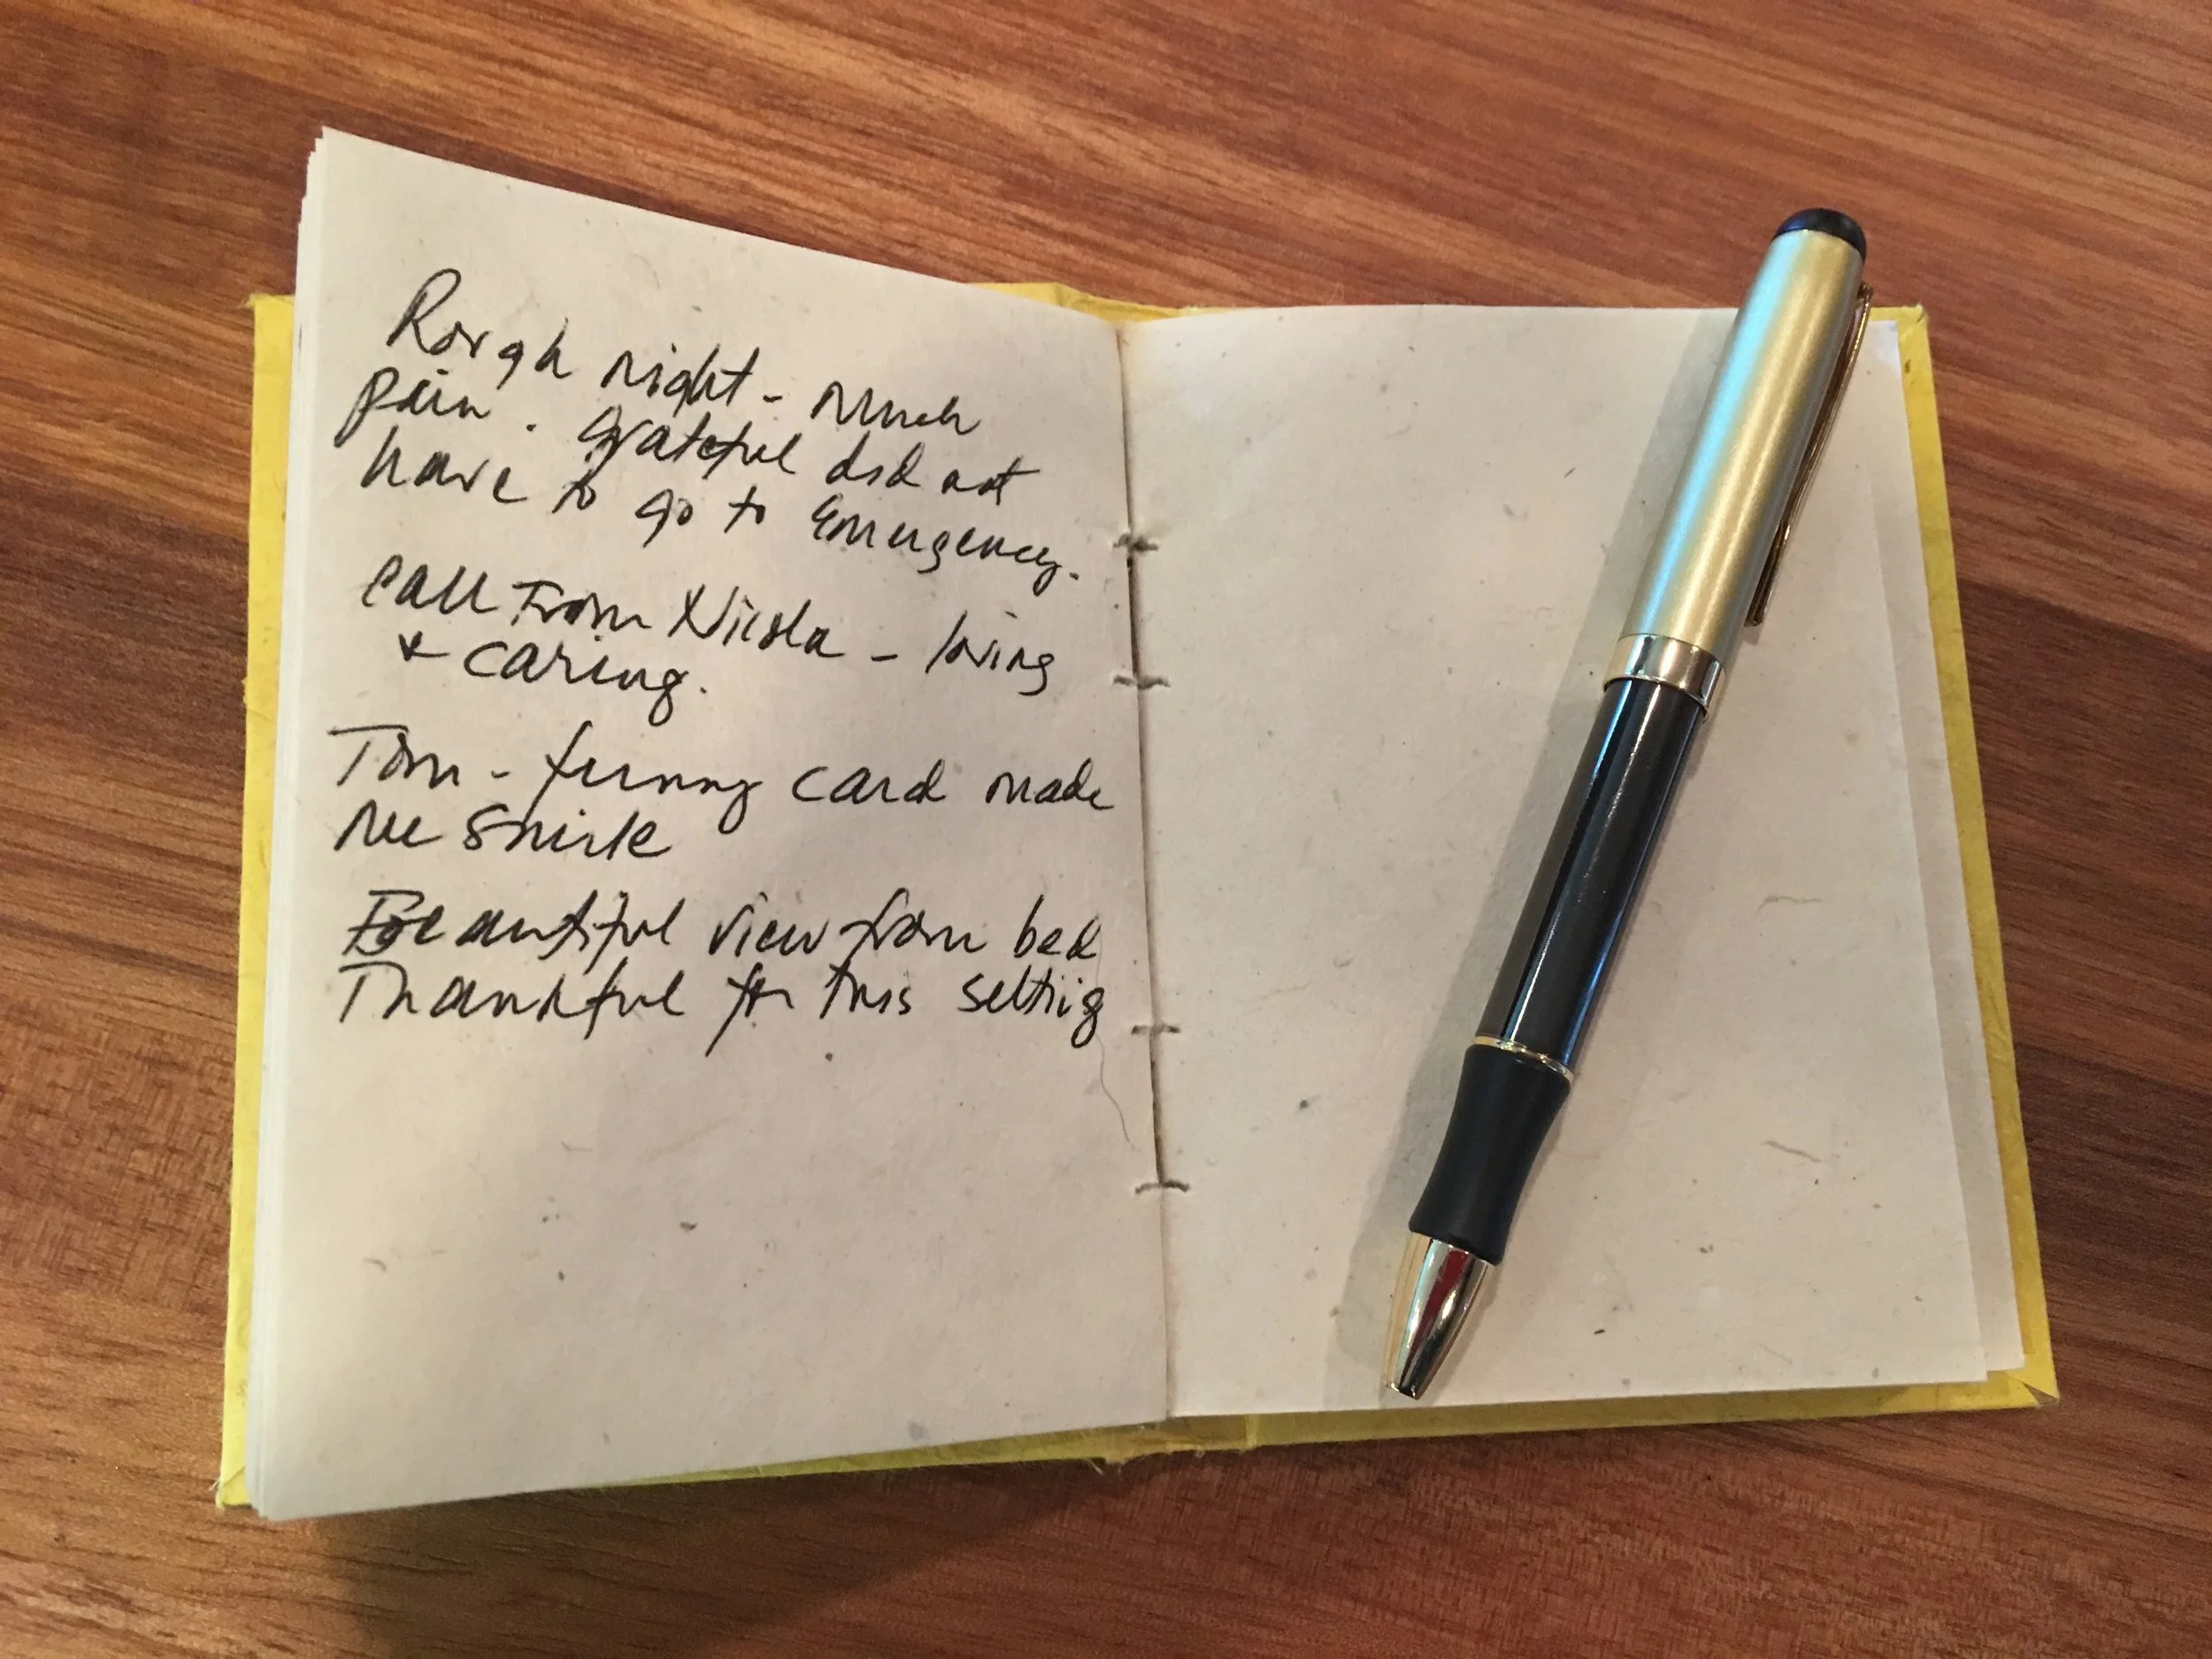 Rough night - Much
pain. Grateful did not
have to go to Emergency.
Call From Nicola - loving
+ caring.
Tom - funny card made
me smile
Beautiful view from bed
Thankful for this setting